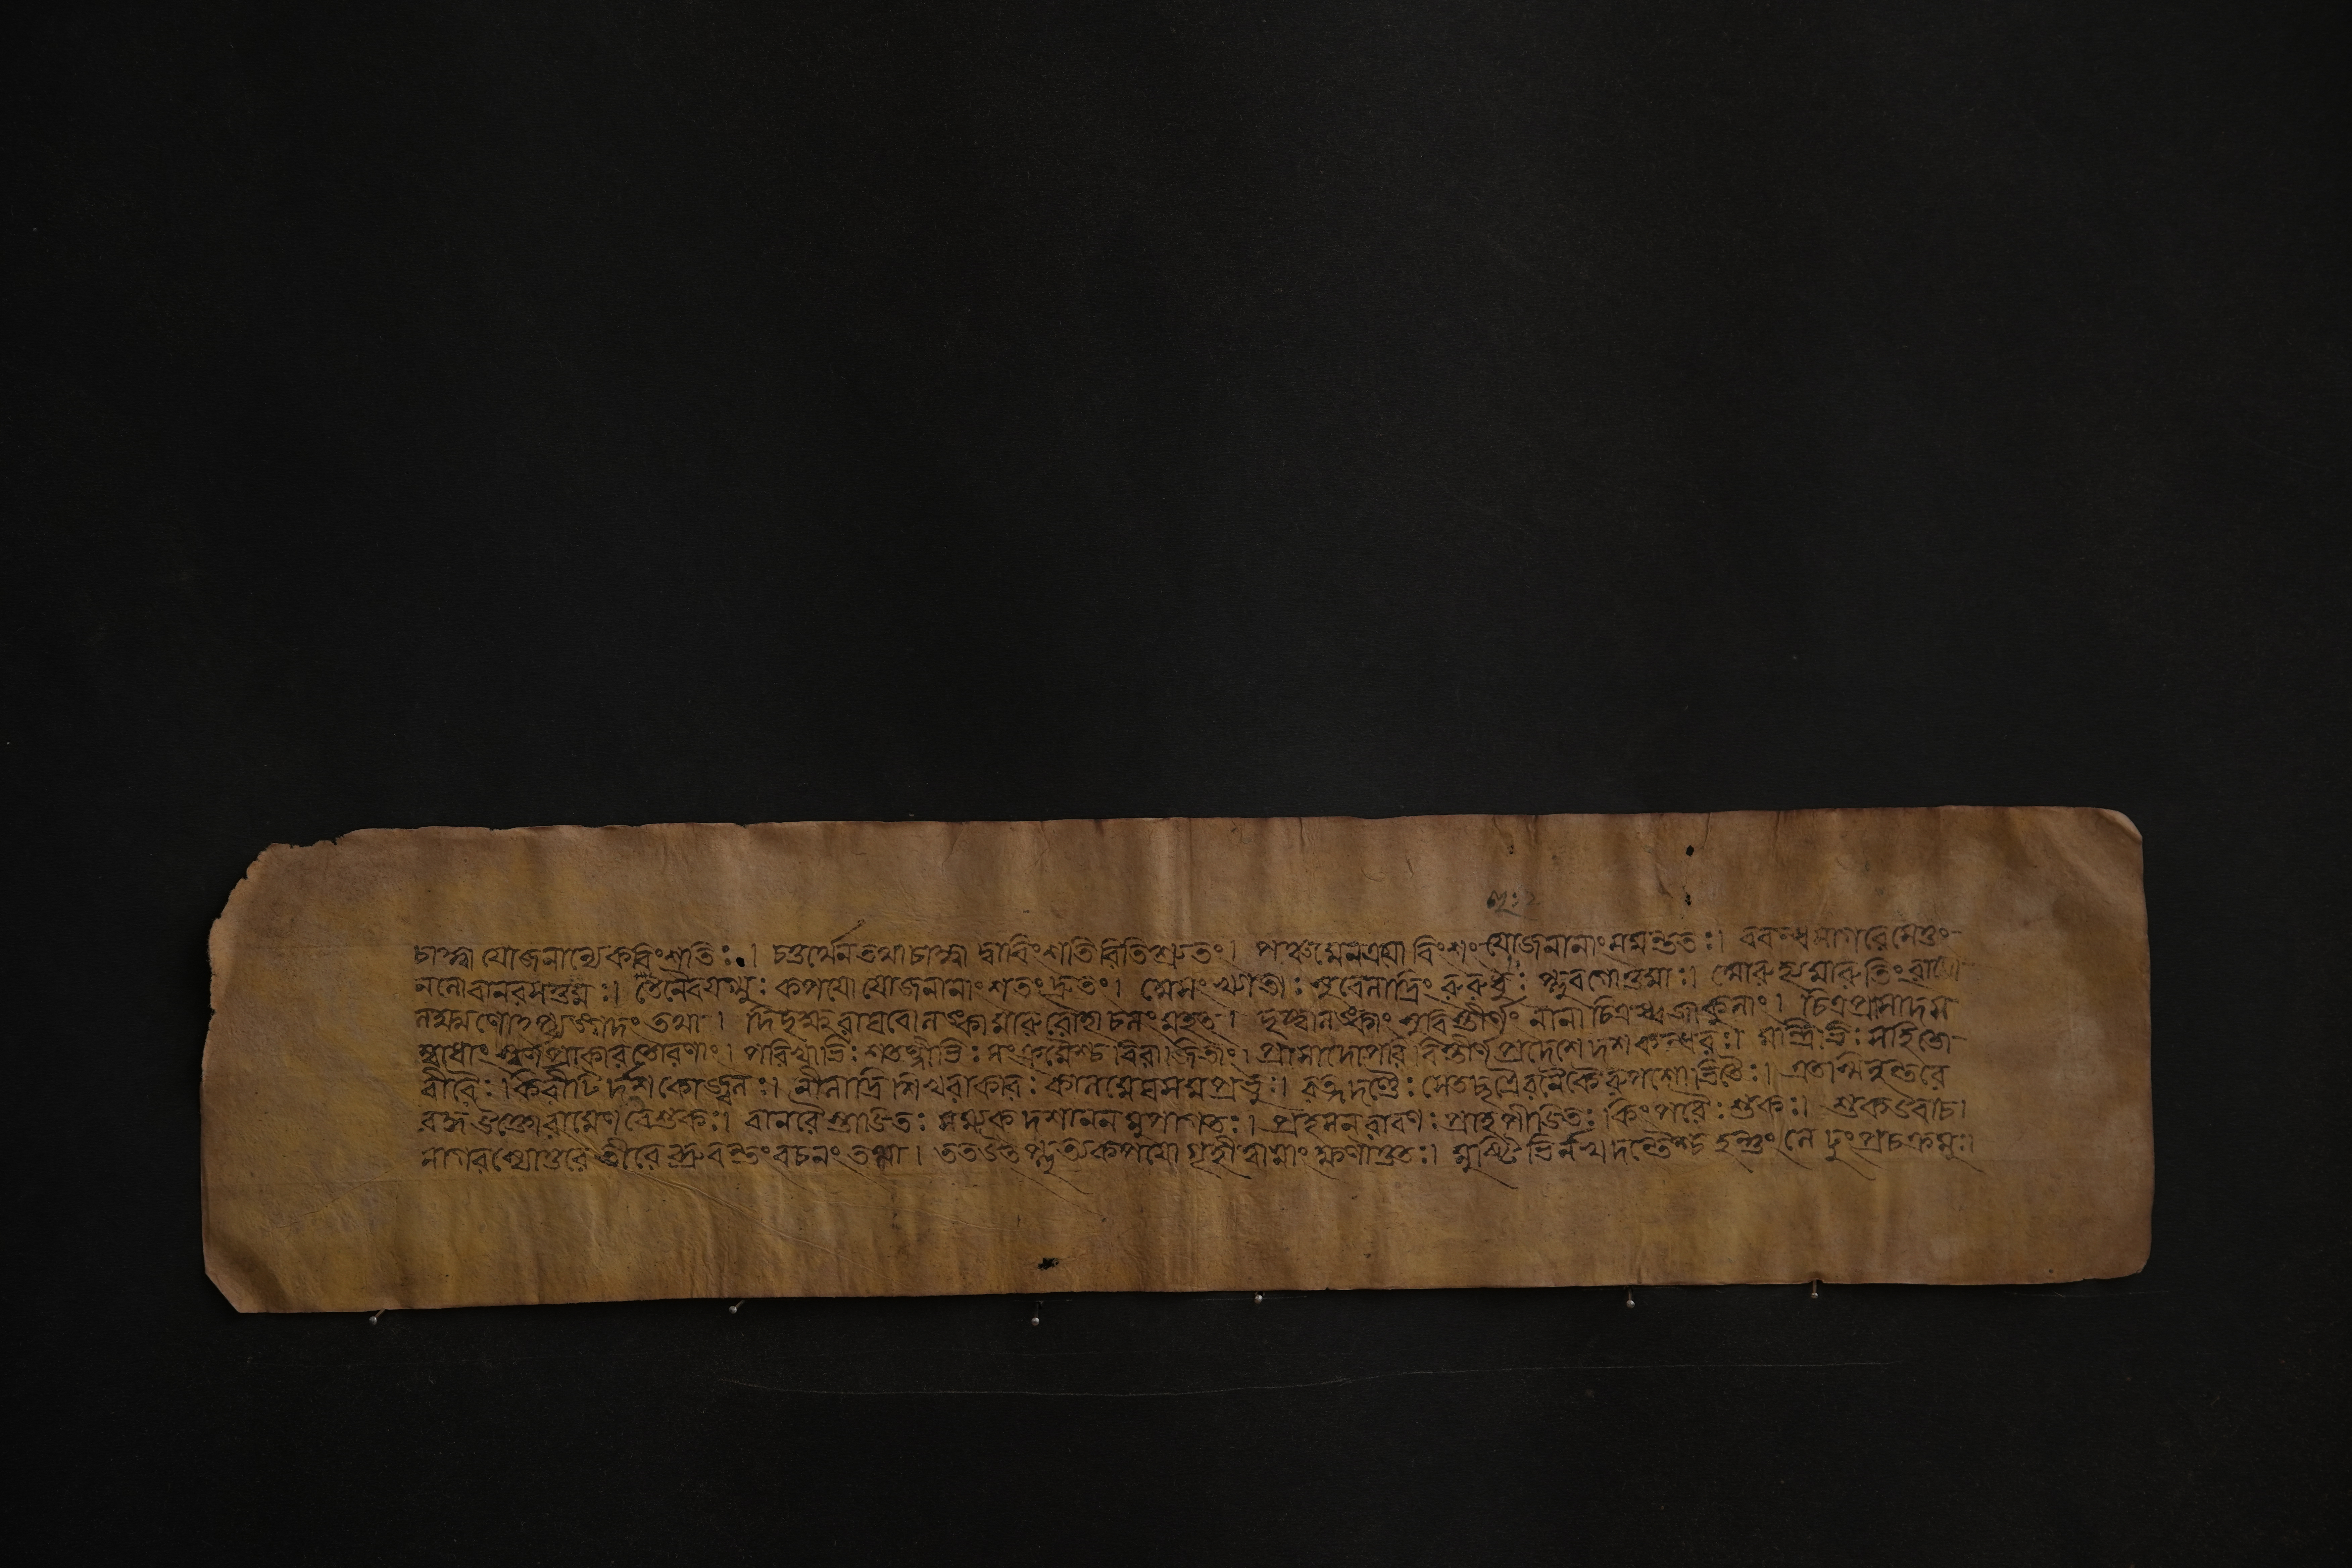 চাহ্না যোজনান্যেকবিংশতিঃ। চতুর্থেন তথা চাহ্না দ্বাবিংশতিরিতিশ্রুতং। পঞ্চমেনত্রয়োবিংশং যোজনানাং সমন্ততঃ। ববন্ধসাগরেসেতুং
নলোবানরসত্তমঃ। তেনৈবযগ্মুঃ কপয়ো যোজনানাং শতংদ্রুতং। সুবেলাদ্রিং রুরুধুঃ প্লবগোত্তমাঃ। মারুতিং রামো
লক্ষ্মণোহপ্যঙ্গদং তথা। দিদৃক্ষুরাঘবোলঙ্কামারুরোহাচলং মহত্। দৃষ্ট্বালঙ্কাং সুবিস্তীর্ণাং নানাচিত্রধ্বজাকুলাং। চিত্রপ্রাসাদস
ম্বাধাং স্বর্ণপ্রাকারতোরণাং। পরিখাভিঃ শতঘ্নীভিঃ সংক্রমৈশ্চ বিরাজিতাং। প্রাসাদোপরি বিস্তীর্ণপ্রদেশে দশকন্ধরঃ। মন্ত্রিভিঃ সহিতো
বীরৈঃ। কিরীটির্দশকোজ্জ্বলঃ। নীলাদ্রিশিখরাকারঃ কালমেঘসমপ্রভুঃ। রত্নদণ্ডৈঃ সেতচ্ছত্রৈরনেকৈরুপশোভিতৈঃ। এতস্মিন্নন্তরে
বদ্ধ উক্তোরামেণ বৈশুকঃ। বানরৈস্তাডিতঃ সম্যক দশাননমুপাগতঃ। প্রহসনরাবণঃ প্রাহ পীডিতঃ কিং পরৈঃ শুকঃ। শুকউবাচ।
সাগরস্যোত্তরে তীরে ব্রুবন্তং বচনং তথা। ততউৎপ্লুত্যকপয়ো গৃহীত্বামাং ক্ষণাত্ততঃ। মুষ্টিভির্নখদন্তৈশ্চ হন্তুং প্রচক্রমুঃ।